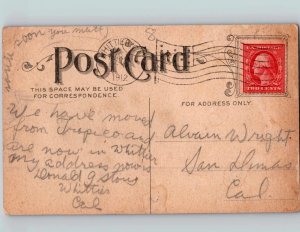 write soon you must
Post Card
WHITTIER
1912
THIS SPACE MAY BE USED
FOR CORRESPONDENCE.
FOR ADDRESS ONLY
TWO CENTS
We have moved
from tropico and
are now in whittier
my address now is
Donald
Whittier
Cal
Alvain Wright
San Dimas
Cal.